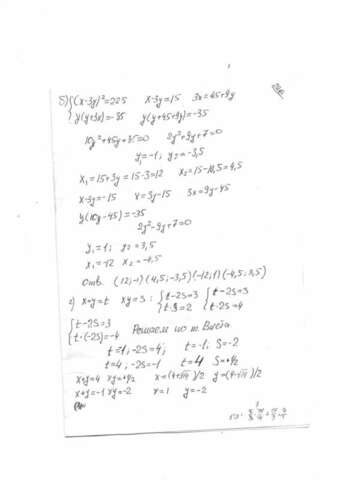 б) {(x-3y)²=225 x-3y=15 3x=45+9y
y(y+3x)=-35 y(y+45+9y)=-35
10y²+45y+35=0 2y²+9y+7=0
y₁=-1; y₂=-3,5
x₁=15+3y=15-3=12 x₂=15-10,5=4,5
x-3y=-15 x=3y-15 3x=9y-45
y(10y-45)=-35
2y²-9y+7=0
y₁=1; y₂=3,5
x₁=-12 x₂=-4,5
отв. (12;-1)(4,5;-3,5)(-12;1)(-4,5;3,5)
x+y=t xy=S : {t-2S=3 {t-2S=3
t·S=2 t·2S=4
{t-2S=3
t·(-2S)=-4 Решаем по т. Виета
t=1; -2S=4; t=-1; S=-2
t=4; -2S=-1 t=4 S=1/2
x+y=4 xy=1/2 x=(4+√14)/2 y=(4-√14)/2
x+y=-1 xy=-2 x=1 y=-2